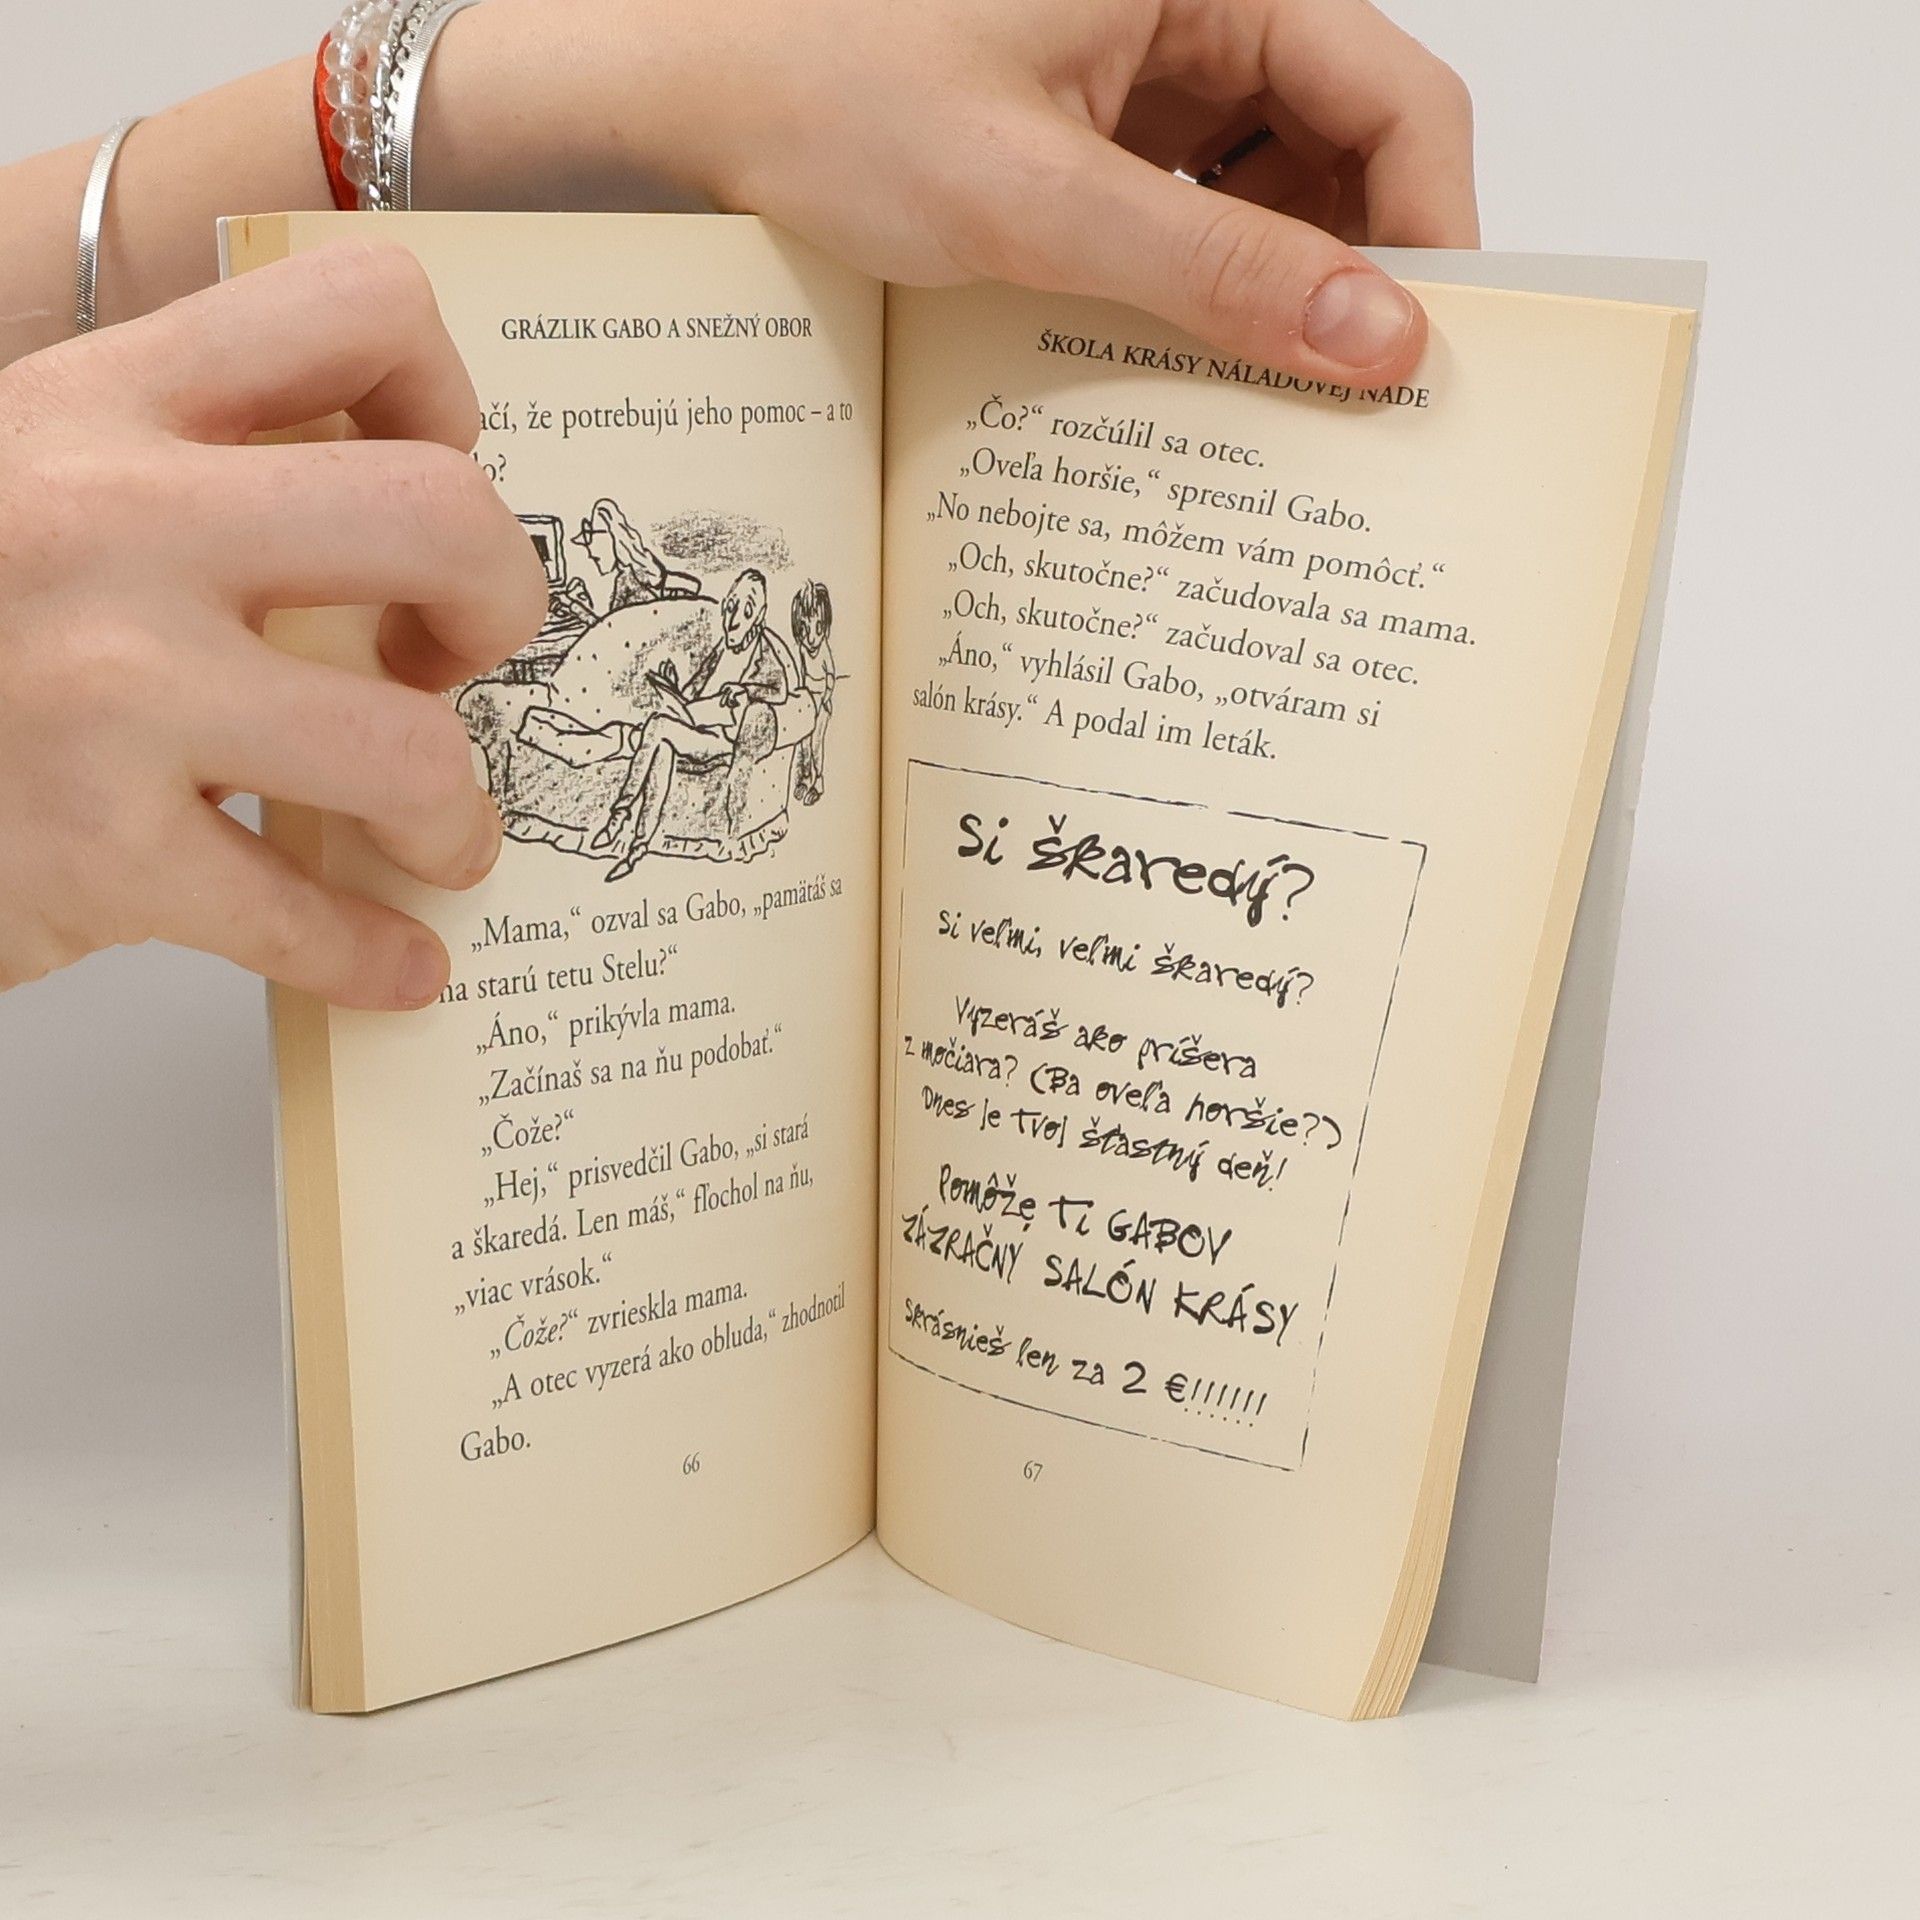 GRÁZLIK GABO A SNEŽNÝ OBOR
že potrebujú jeho pomoc – a to
„Mama,“ ozval sa Gabo, „pamätáš sa
na starú tetu Stelu?“
„Áno,“ prikývla mama.
„Začínaš sa na ňu podobať.“
„Čože?“
„Hej,“ prisvedčil Gabo, „si stará
a škaredá. Len máš,“ fľochol na ňu,
„viac vrások.“
„Čože?“ zvrieskla mama.
„A otec vyzerá ako obluda,“ zhodnotil
Gabo.
66
ŠKOLA KRÁSY NÁLADOVEJ NADE
„Čo?“ rozčúlil sa otec.
„Oveľa horšie,“ spresnil Gabo.
„No nebojte sa, môžem vám pomôcť.“
„Och, skutočne?“ začudovala sa mama.
„Och, skutočne?“ začudoval sa otec.
„Áno,“ vyhlásil Gabo, „otváram si
salón krásy.“ A podal im leták.
Si škaredý?
Si veľmi, veľmi škaredý?
Vyzeráš ako príšera
z močiara? (Ba oveľa horšie??)
Dnes je Tvoj šťastný deň!
Pomôže Ti GABOV
ZÁZRAČNÝ SALÓN KRÁSY
Skrásnieš len za 2 €!!!!!!
67